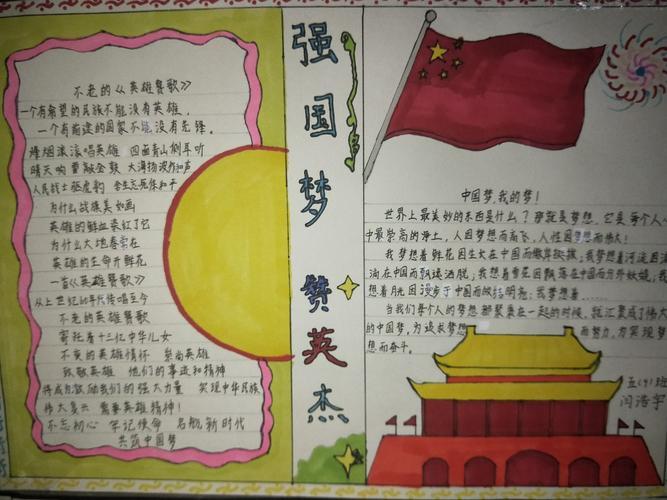 不老的《英雄赞歌》
一个有希望的民族不能没有英雄，
一个有前途的国家不能没有先锋。
烽烟滚滚唱英雄 四面青山侧耳听
晴天响雷敲金鼓 大海扬波作和声
人民战士驱虎豹 舍生忘死保和平
为什么战旗美如画
英雄的鲜血染红了它
为什么大地春常在
英雄的生命开鲜花
一首《英雄赞歌》
从上世纪 年代传唱至今
不老的英雄赞歌
寄托着十三亿中华儿女
不变的英雄情怀 崇尚英雄
致敬英雄 他们的事迹和精神
将成为激励我们的强大力量 实现中华民族
伟大复兴 需要英雄精神！
不忘初心 牢记使命 启航新时代
共筑中国梦
强国梦 赞英杰
中国梦，我的梦！
世界上最美妙的东西是什么？那就是梦想，它是每个人心
中最崇高的净土，人因梦想而高飞，人性因梦想而伟大！
我梦想着鲜花因生在中国而 ；我梦想着河流因流
淌在中国而飘逸洒脱；我想着雪花因飘落在中国而分外妖娆；我
想着月光因 于中国而皎洁明亮；我梦想着……
当我们每个人的梦想都聚集在一起的时候，就汇聚成了伟大
的中国梦，为追求梦想 而努力，为实现梦
想而奋斗。
五(9)班
闫浩宇